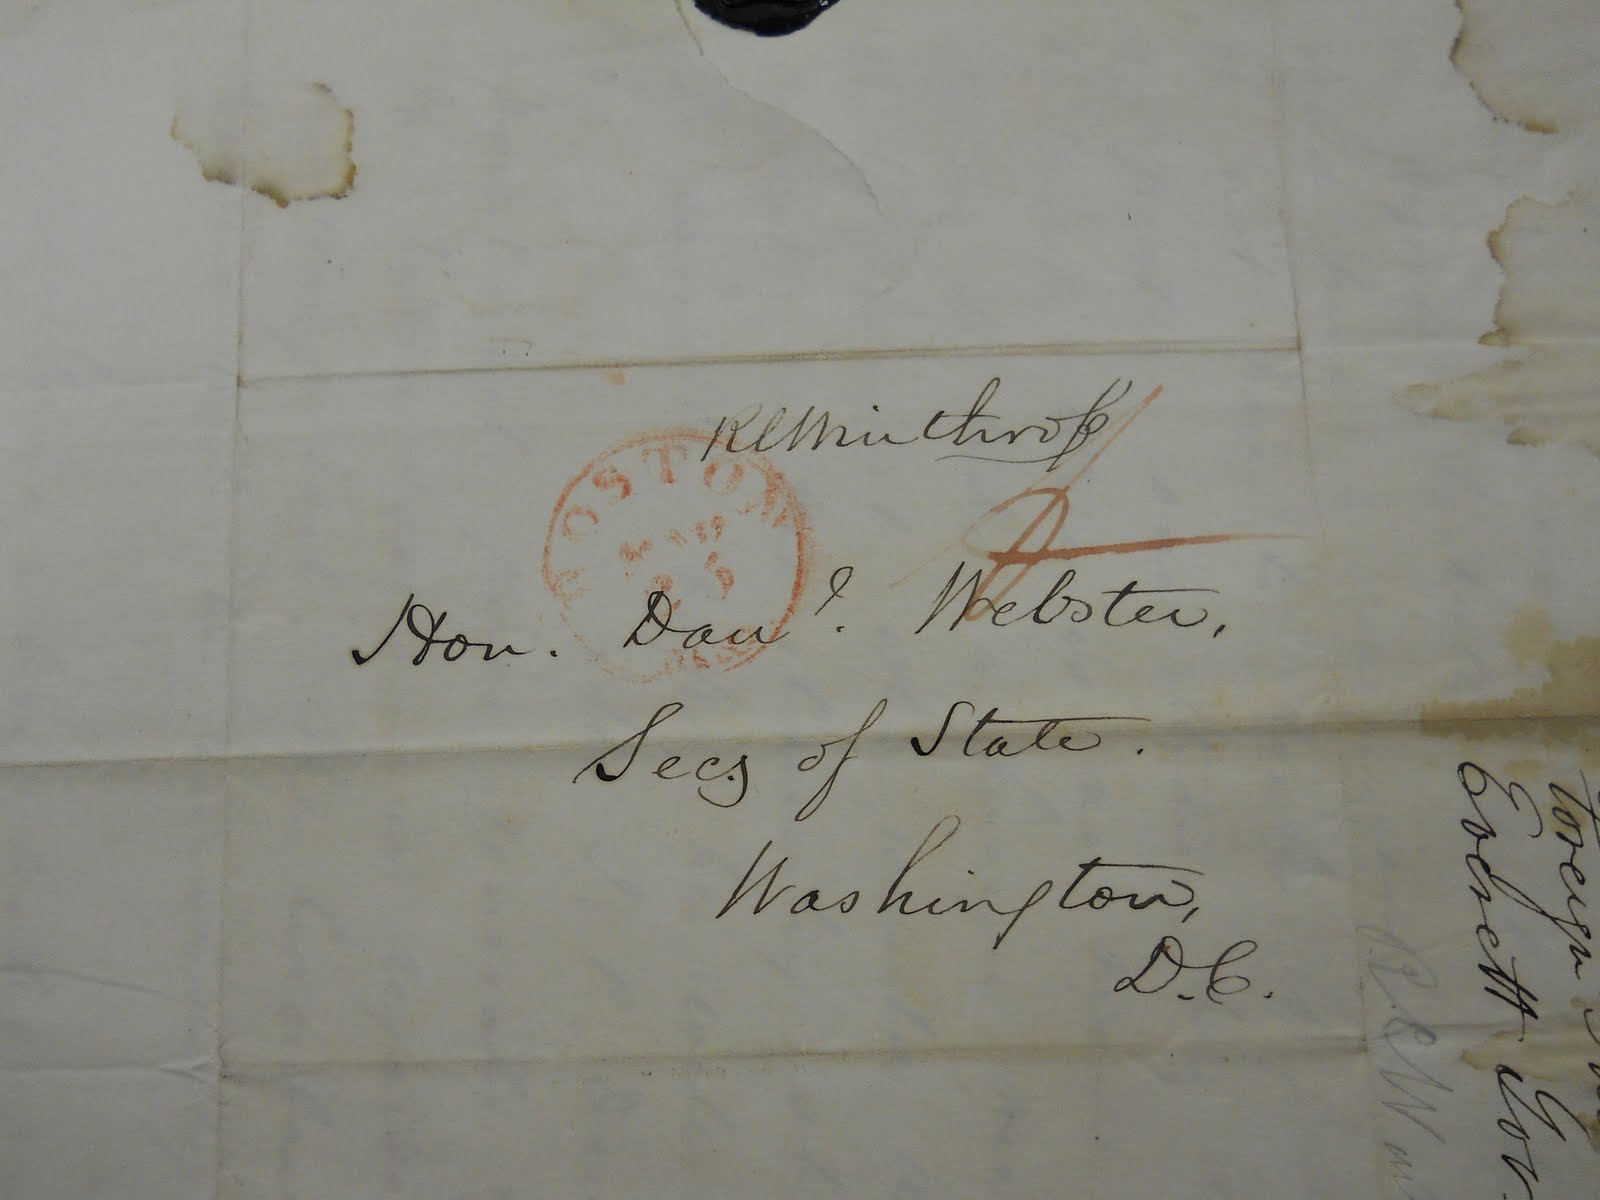 RCWinthrop
BOSTON
MAR
25
MASS
Hon. Danl. Webster,
Secy of State.
Washington,
D.C.
Foreign
Everett Gov.
R.C.W